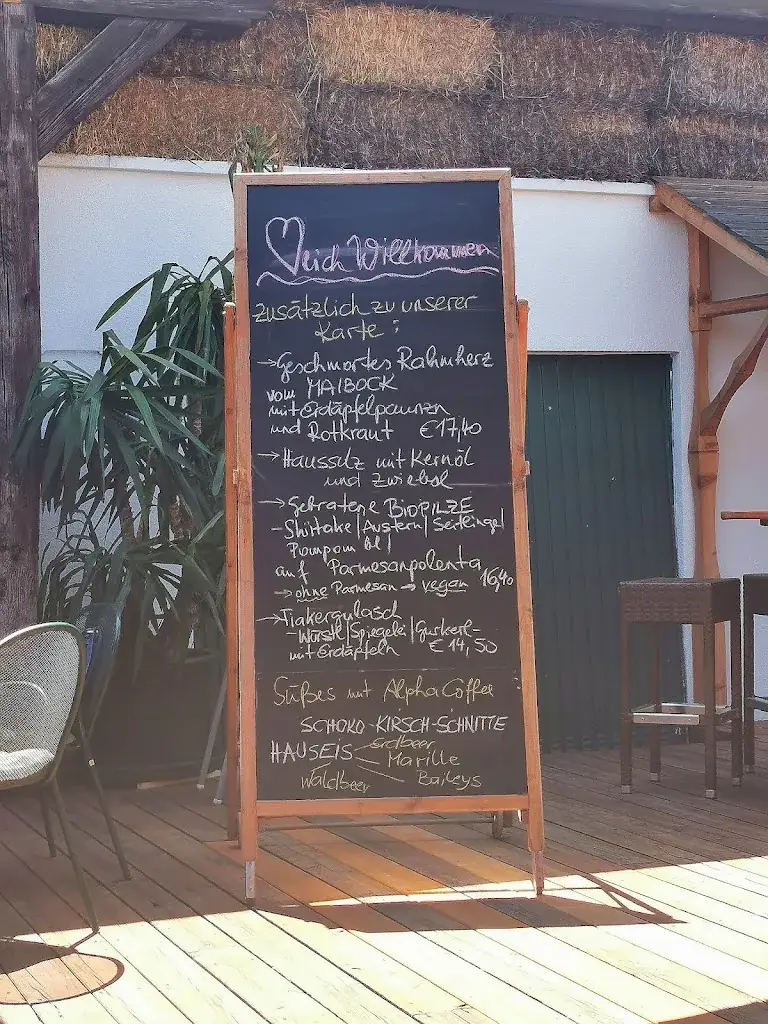 ♡lich Willkommen
zusätzlich zu unserer
Karte:
→ Geschmortes Rahmherz
vom MAIBOCK
mit Erdäpfelpaunzn
und Rotkraut €17,40
→ Haussulz mit Kernöl
und Zwiebel
→ Gebratene BIOPILZE
- Shiitake/Austern/Seitlinge/
Pompom bl/
auf Parmesanpolenta
→ ohne Parmesan → vegan 16,40
→ Fiakergulasch
- Würstl/Spiegelei/Gurkerl-
mit Erdäpfeln €14,50
Süßes mit AlphaCoffee
SCHOKO-KIRSCH-SCHNITTE
HAUSEIS - Erdbeer
Marille
Waldbeer Baileys